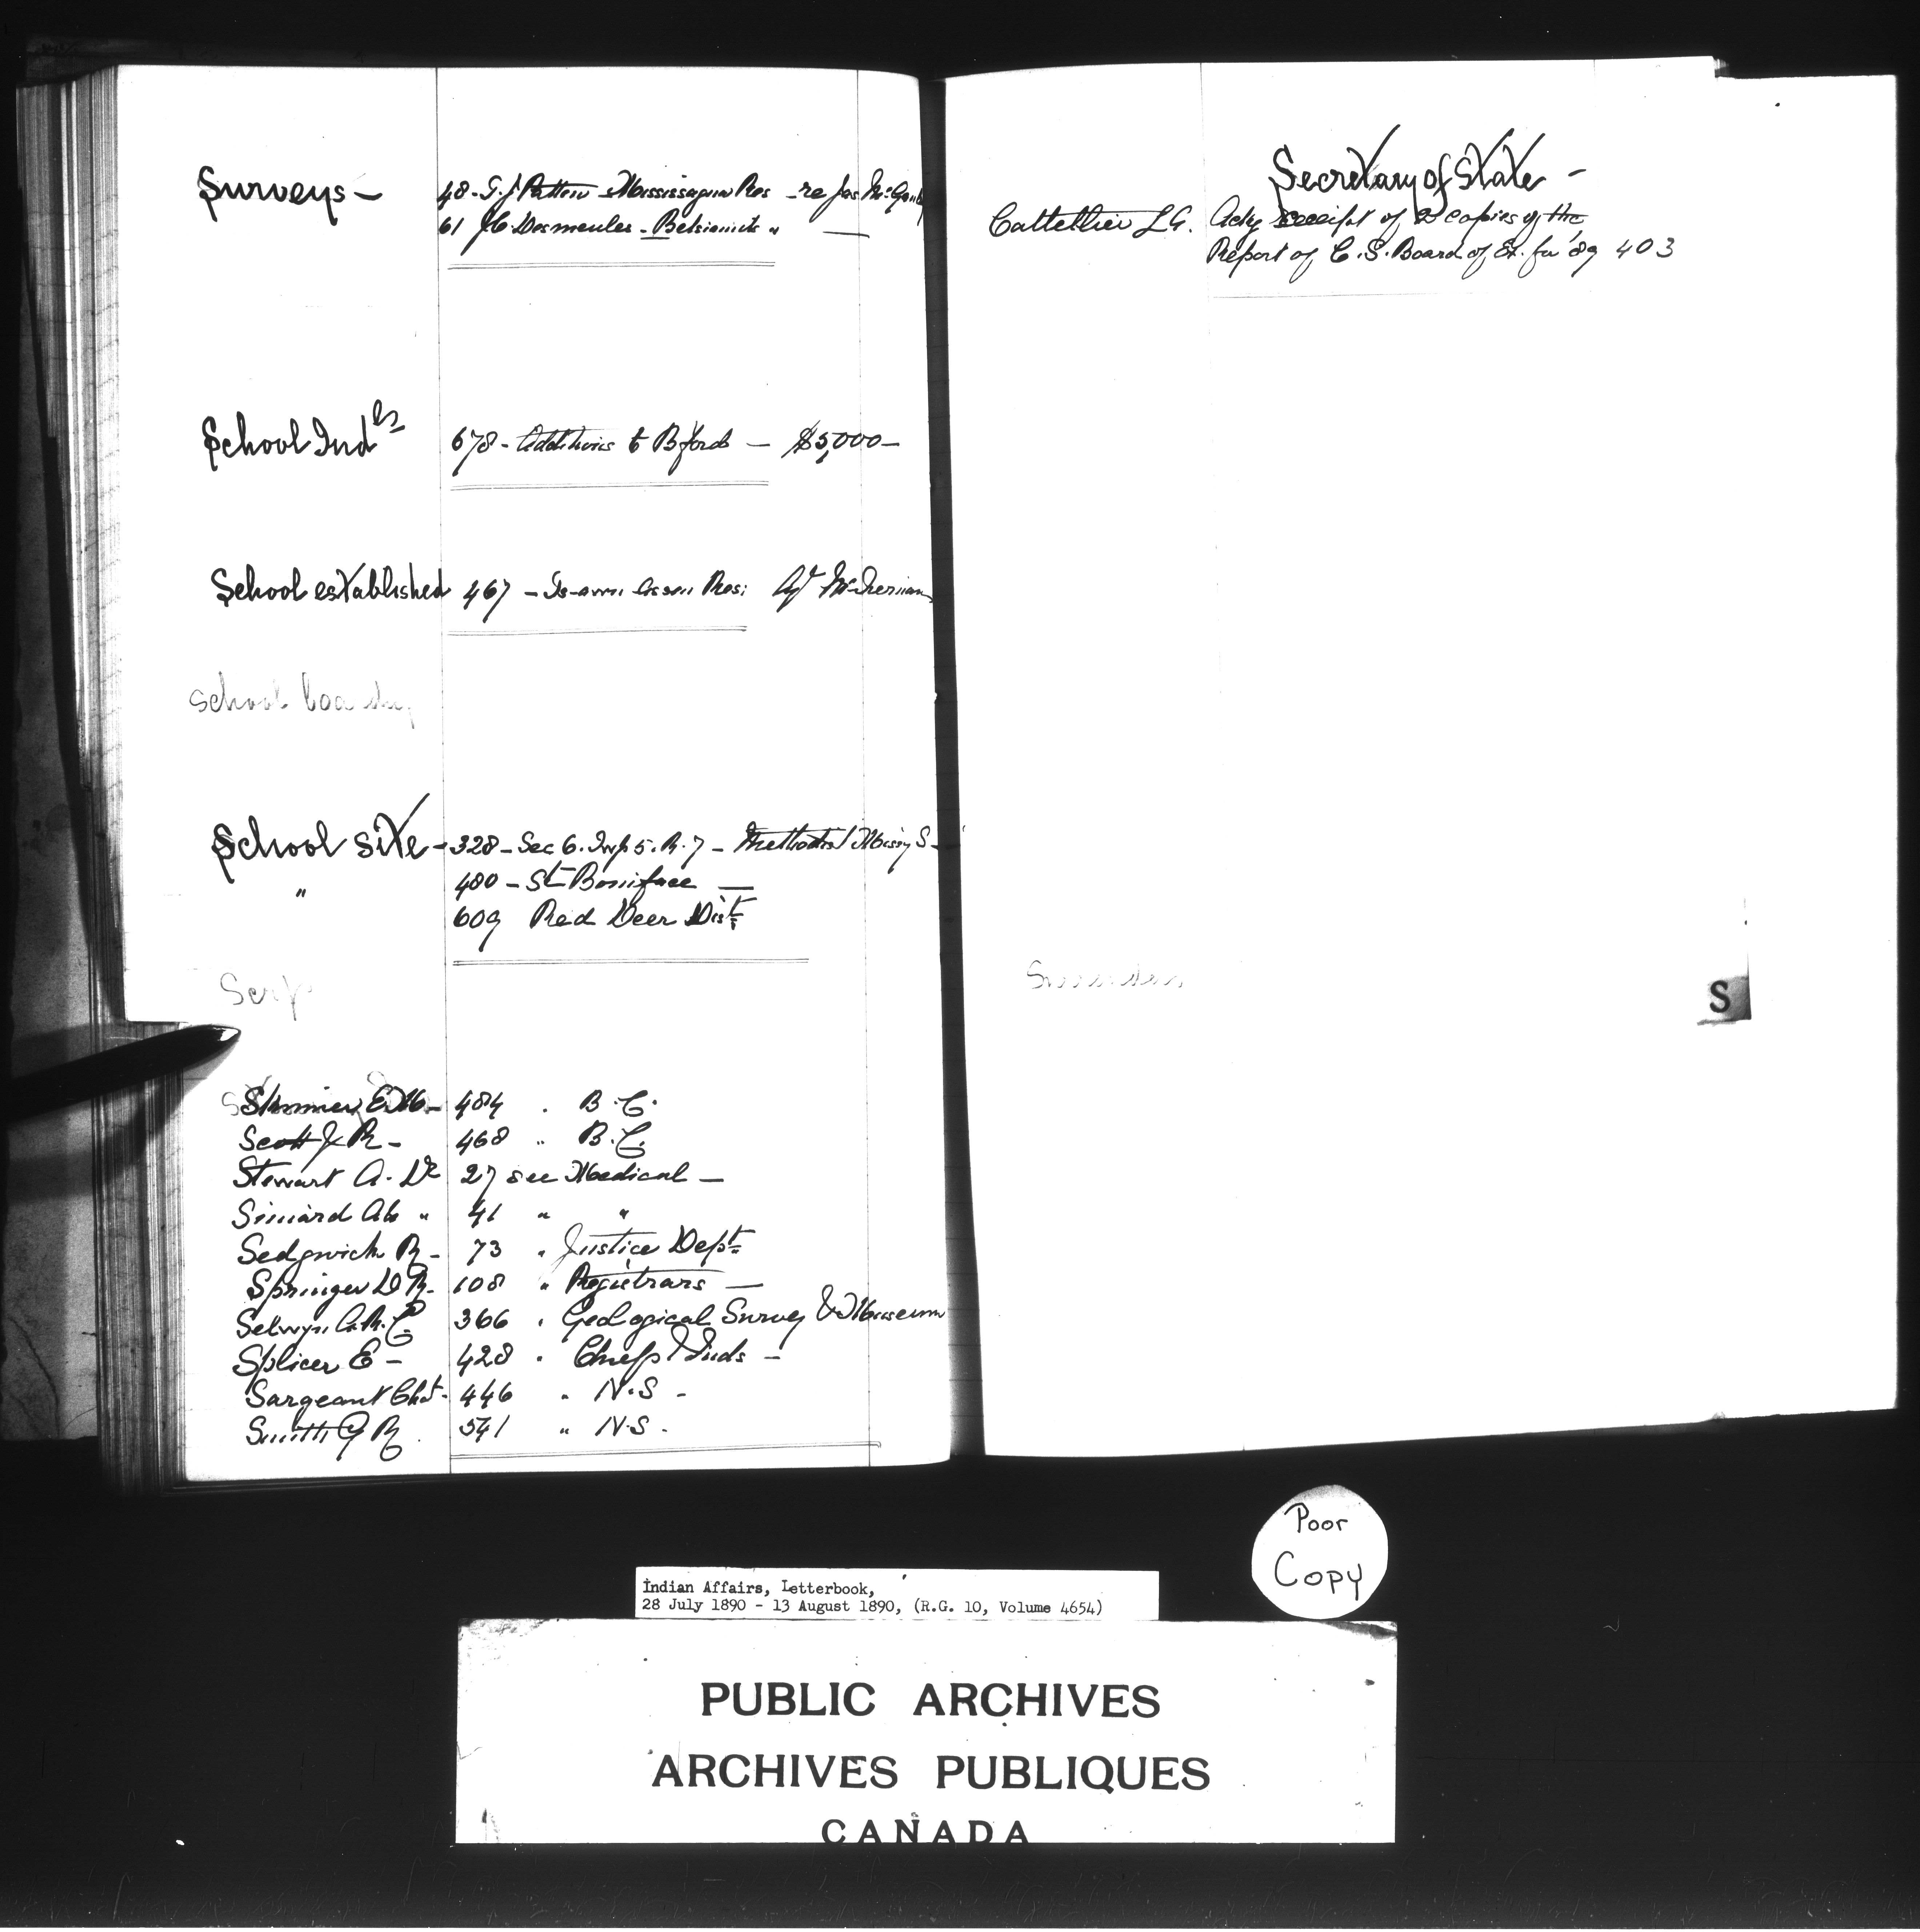 Surveys - 48 - T.J. Patten - Mississagua Res - re Jas
61 J.C. Desmeules - Betsiamits "
School Ind^ls 678 - Additions to B'ford - $5,000 -
School established 467 - Res: Agt
School boarding
School site - 328 - Sec 6. Twp 5. R. 7 - Methodist Missy S -
" 480 - St Boniface -
609 Red Deer Dist
Scrip
Skinner E M - 484 " B.C.
Scott J R - 468 " B.C.
Stewart A. Dr 27 see Medical -
Simard Ab " 41 " "
Sedgwick R - 73 " Justice Dept
Springer D R - 108 " Registrars -
Selwyn A.R.C 366 " Geological Survey & Museum
Splicer E - 428 " Chief & Inds -
Sargeant Chat - 446 " N.S -
Smith G R 541 " N.S.
Secretary of State -
Cattellier L A. Ackg receipt of 2 copies of the
Report of C.S. Board of Ex. for '89 403
Surrenders
S
Poor
Copy
Indian Affairs, Letterbook,
28 July 1890 - 13 August 1890, (R.G. 10, Volume 4654)
PUBLIC ARCHIVES
ARCHIVES PUBLIQUES
CANADA